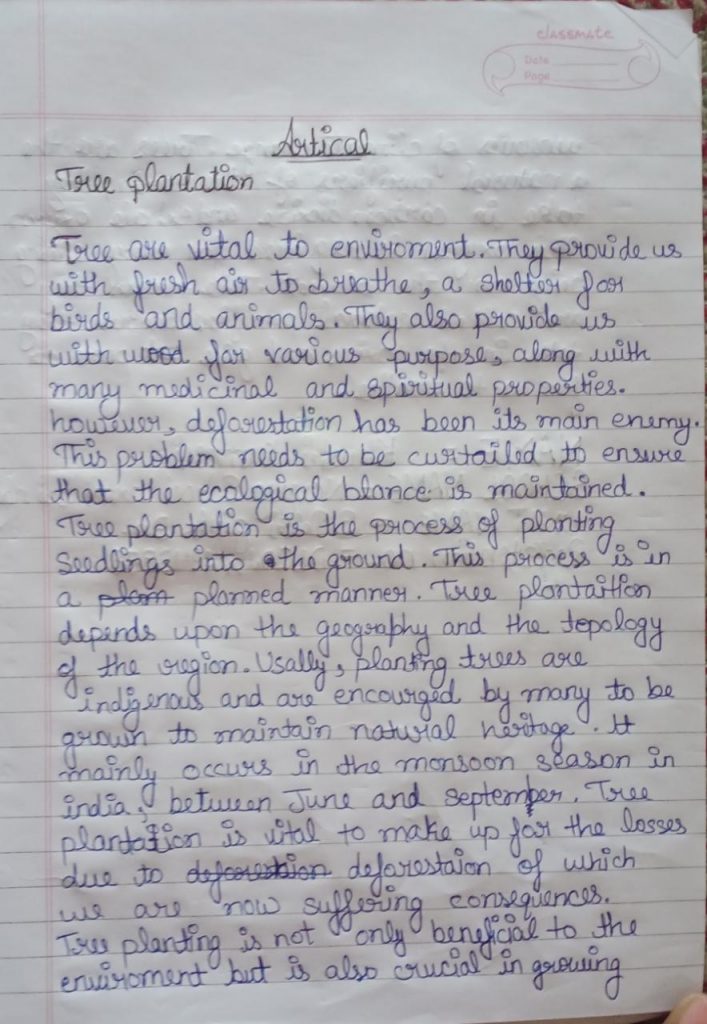 classmate
Date
Page
Artical
Tree plantation
Tree are vital to enviroment. They provide us
with fresh air to breathe, a shelter for
birds and animals. They also provide us
with wood for various purpose, along with
many medicinal and spiritual properties.
however, deforestation has been its main enemy.
This problem needs to be curtailed to ensure
that the ecological blance is maintained.
Tree plantation is the process of planting
Seedlings into the ground. This process is in
a plam planned manner. Tree plantaition
depends upon the geography and the topology
of the region. Usally, planting trees are
indigenous and are encourged by many to be
grown to maintain natural heritage. It
mainly occurs in the monsoon season in
india, between June and september. Tree
plantation is vital to make up for the losses
due to deforestaion of which
we are now suffering consequences.
Tree planting is not only benefical to the
enviroment but is also crucial in growing